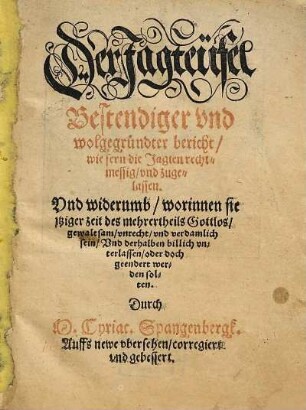 Der Jagteüfel
Bestendiger vnd
wolgegründter bericht /
wie fern die Jagten recht-
messig / vnd zuge-
lassen.
Vnd widerumb / worinnen sie
itziger zeit des mehrertheils Gottlos /
gewaltsam / vnrecht / vnd verdamlich
sein / Vnd derhalben billich vn-
terlassen / oder doch
geendert wer-
den sol-
ten.
Durch
M. Cyriac. Spangenbergk.
Auffs newe vbersehen / corregiert
vnd gebessert.